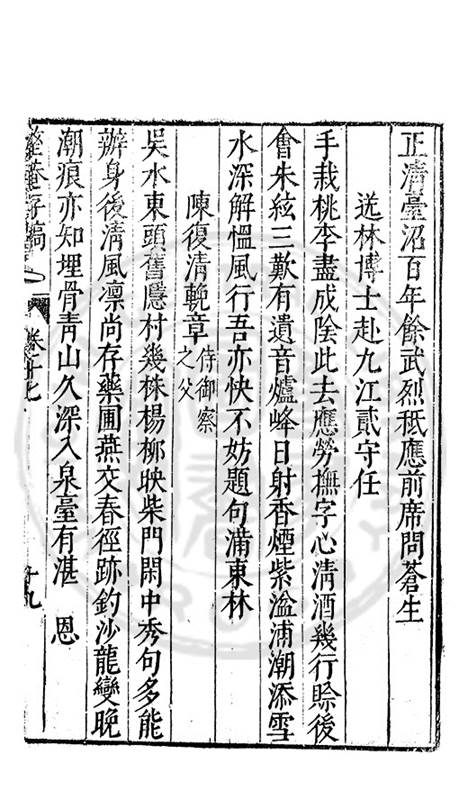 正清臺沼百年餘武烈秪應前席問蒼生
送林博士赴九江貳守任
手栽桃李盡成陰此去應勞撫字心清酒幾行賒後
會朱絃三歎有遺音爐峰日射香煙紫湓浦潮添雪
水深解慍風行吾亦快不妨題句滿東林
陳復清輓章
侍御察
之父
吳水東頭舊隱村幾株楊柳映柴門閑中秀句多能
辦身後清風凛尚存藥圃燕交春徑跡釣沙龍變晚
潮痕亦知埋骨青山久深入泉臺有湛 恩
存稿
卷十七
十九